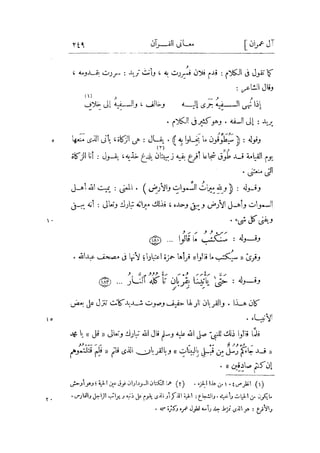 آل عمران ] معانى القرآن ٢٤٩
كما تقول فى الكلام : قدم فلان فسررت به ، وأنت تريد : سررت بقدومه ،
وقال الشاعر :
إذا نُهِى السفيه جَرَى إليــه وخالف ، والسفيهُ إلى خِلافِ (١)
يريد : إلى السفه . وهو كثير فى الكلام .
وقوله : ﴿ سَيُطَوَّقُونَ مَا بَخِلُوا بِهِ ﴾ . يقال : هى الزكاة ، يأتى الذى منعها ٥
يوم القيامة قد طُوِّق شجاعا أقرع بفيه زبيبتان (٢) يلدغ خدّيه ، يقول : أنا الزكاة
التى منعتنى .
وقــوله : ﴿ وللهِ مِيرَاثُ السَّمَوَاتِ والأَرْضِ ﴾ . المعنى : يميت الله أهــل
السموات وأهــل الأرض ويبقى وحده ، فذلك ميراثه تبارك وتعالى : أنه يبقى
ويفنى كل شىء . ١٠
وقــوله : سَنَكْتُبُ مَا قَالُوا ... (١٨١)
وقرئ « سيُكتب ما قالوا » قرأها حمزة اعتبارا ؛ لأنها فى مصحف عبد الله .
وقــوله : حَتَّى يَأْتِيَنَا بِقُرْبَانٍ تَأْكُلُهُ النَّارُ ... (١٨٣)
كان هــذا . والقربان نار لها حفيف وصوت شديد كانت تنزل على بعض
الأنبيــاء . ١٥
فلمَّا قالوا ذلك للنبى صلى الله عليه وسلم قال الله تبارك وتعالى « قل » يا محمد
« قــد جاءكم رُسُلٌ مِنْ قَبْلِى بِالبَيِّنَاتِ » وبالقربان الذى قلتم « فَلِمَ قَتَلْتُمُوهُم
إن كنتم صادقين » .
(١) انظر ص ١٠٤ من هذا الجزء . (٢) هما النكتتان السوداوان فوق عين الحية ؛ وهو أوحش
ما يكون من الحيات وأخبثه . والشجاع : الحية الذكر أو الذى يقوم على ذنبه و يواثب الراجل والفارس . ٢٠
والأقرع : هو الذى تمرّط جلد رأسه لطول عمره وكثرة سمه .